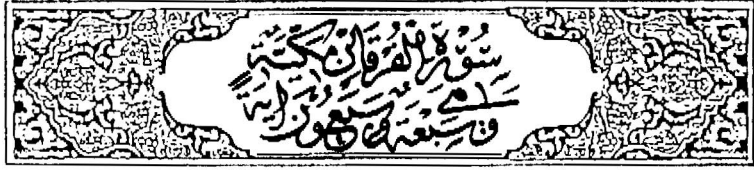 سُورَةُ الْفُرْقَانِ مَكِّيَّةٌ
وَهِيَ سَبْعَةٌ وَسَبْعُونَ آيَةً